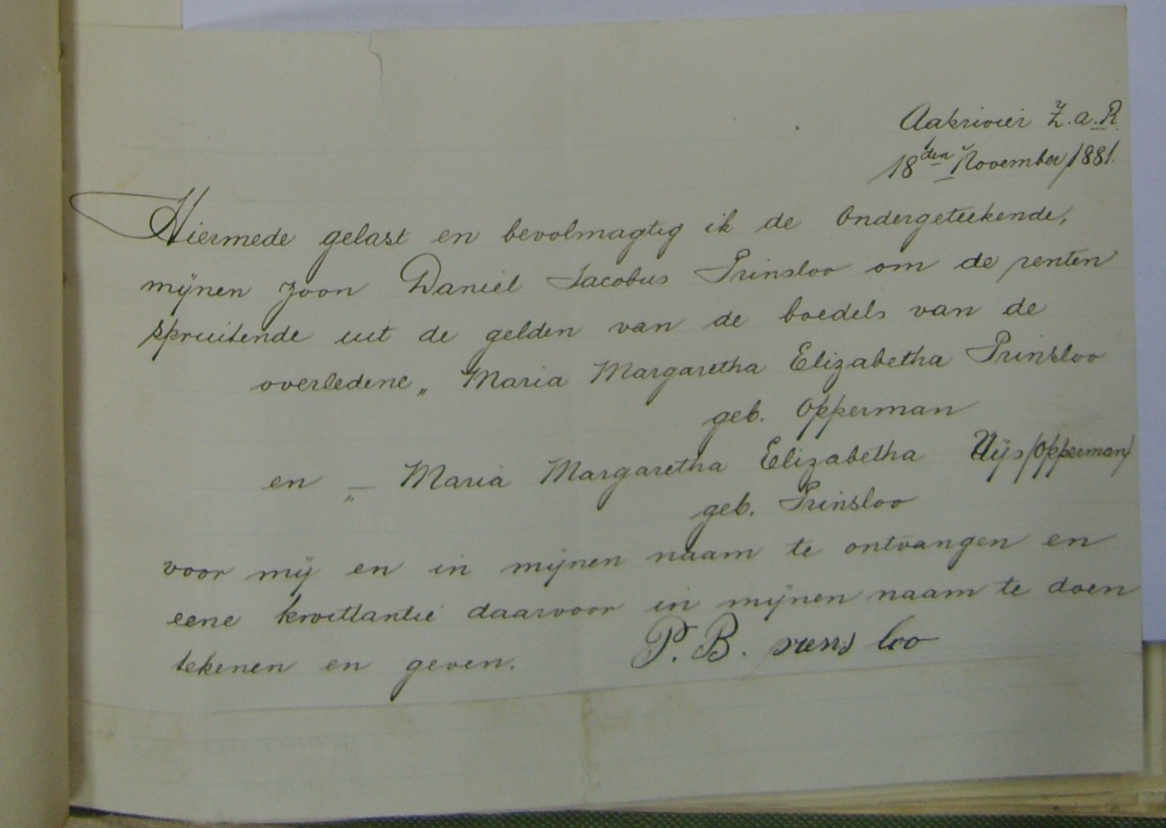 Aakrivier Z.a.R.
18den November 1881.
Hiermede gelast en bevolmagtig ik de Ondergeteekende,
mijnen zoon Daniel Jacobus Prinsloo om de renten
spruitende uit de gelden van de boedels van de
overledene „ Maria Margaretha Elizabetha Prinsloo
geb. Opperman
en „ — Maria Margaretha Elizabetha (Opperman)
geb. Prinsloo
voor mij en in mijnen naam te ontvangen en
eene kwitlantie daarvoor in mijnen naam te doen
tekenen en geven. P. B.